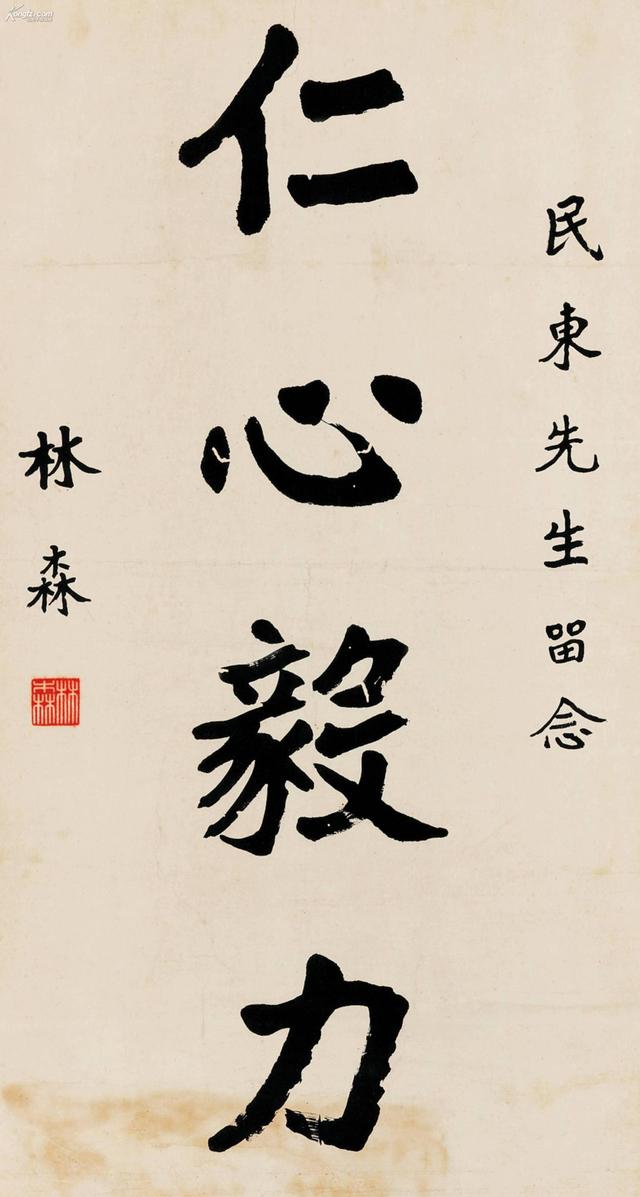 民東先生畱念
仁心毅力
林森
林森
Kongfz.com